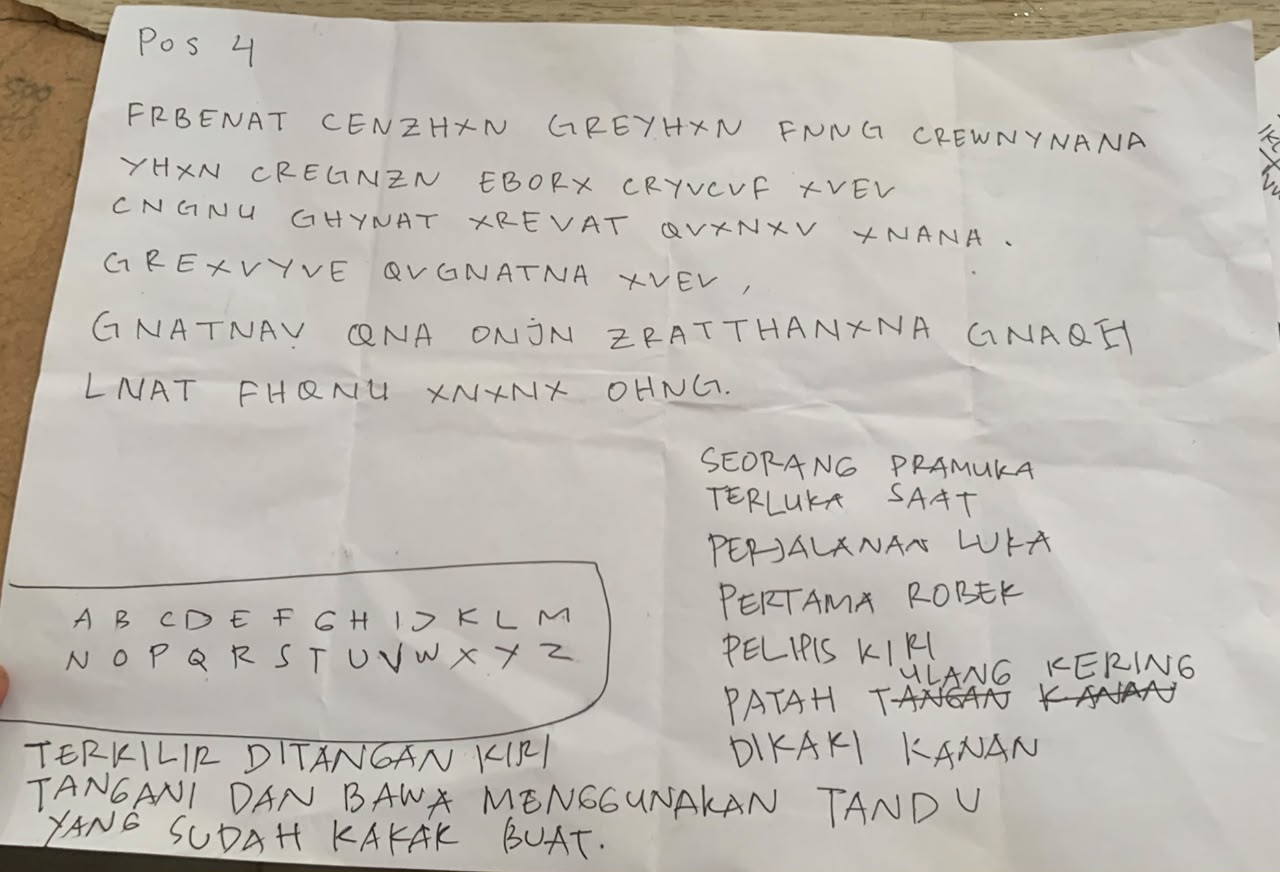 Pos 4
FRBENAT CENZHXN GREYHXN FNNG CREWNYNANA
YHXN CREGNZN EBORX CRYVCVF XVEV
CNGNU GHYNAT XREVAT QVXNXV XNANA.
GREXVYVE QVGNATNA XVEV,
GNATNAV QNA ONJN ZRATTHANXNA GNAQH
LNAT FHQNU XNXNX OHNG.
SEORANG PRAMUKA
TERLUKA SAAT
PERJALANAN LUKA
PERTAMA ROBEK
PELIPIS KIRI
ULANG KERING
PATAH TANGAN KANAN
DIKAKI KANAN
A B C D E F G H I J K L M
N O P Q R S T U V W X Y Z
TERKILIR DITANGAN KIRI
TANGANI DAN BAWA MENGGUNAKAN TANDU
YANG SUDAH KAKAK BUAT.